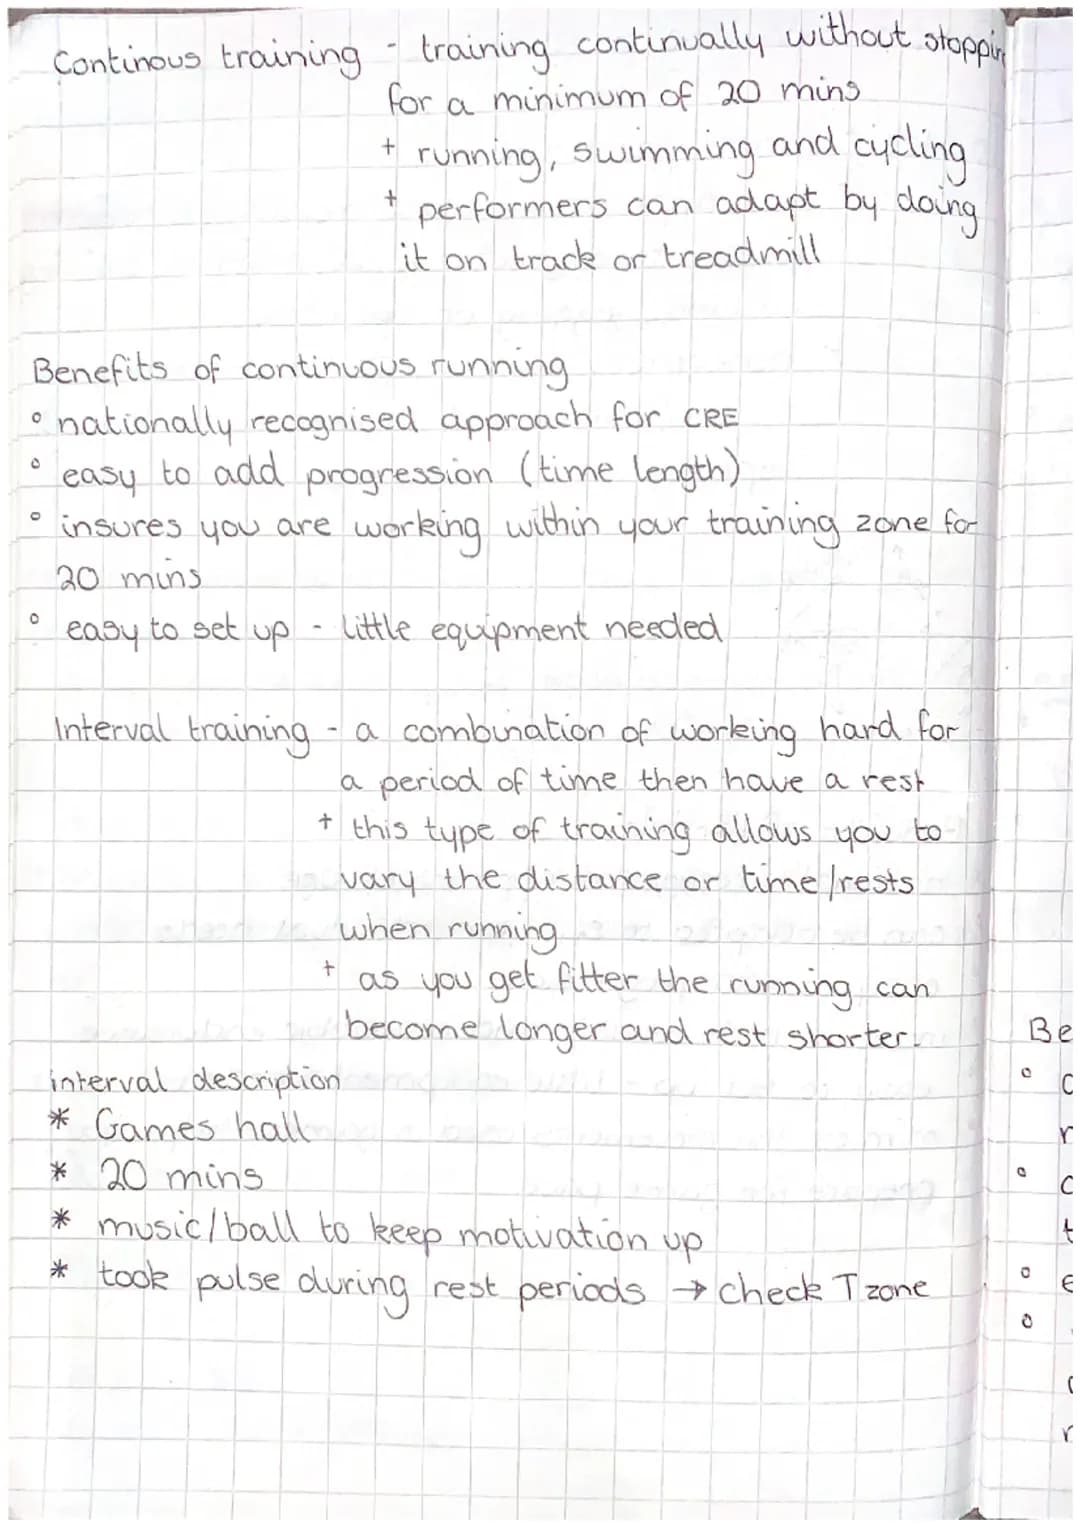 Continous training - training continually without stoppin
for a minimum of 20 mins
+ running, swimming and cycling
+ performers can adapt by doing
it on track or treadmill
Benefits of continuous running
° nationally recognised approach for CRE
° easy to add progression (time length)
° insures you are working within your training zone for
20 mins
° easy to set up - little equipment needed
Interval training - a combination of working hard for
a period of time then have a rest
+ this type of training allows you to
vary the distance or time/rests
when running
+ as you get fitter the running can
become longer and rest shorter.
interval description
* Games hall
* 20 mins
* music/ball to keep motivation up
* took pulse during rest periods → check T zone
Be